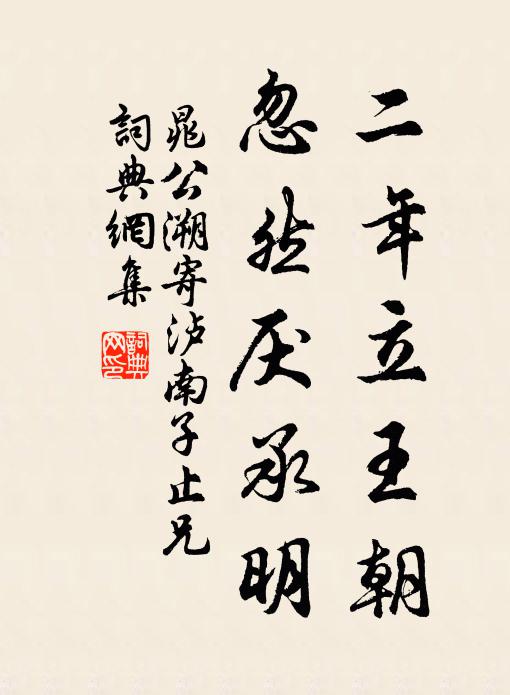 二年立王朝
忽然厌承明
晁公溯寄泸南子止兄
詞典網集
詞典网印